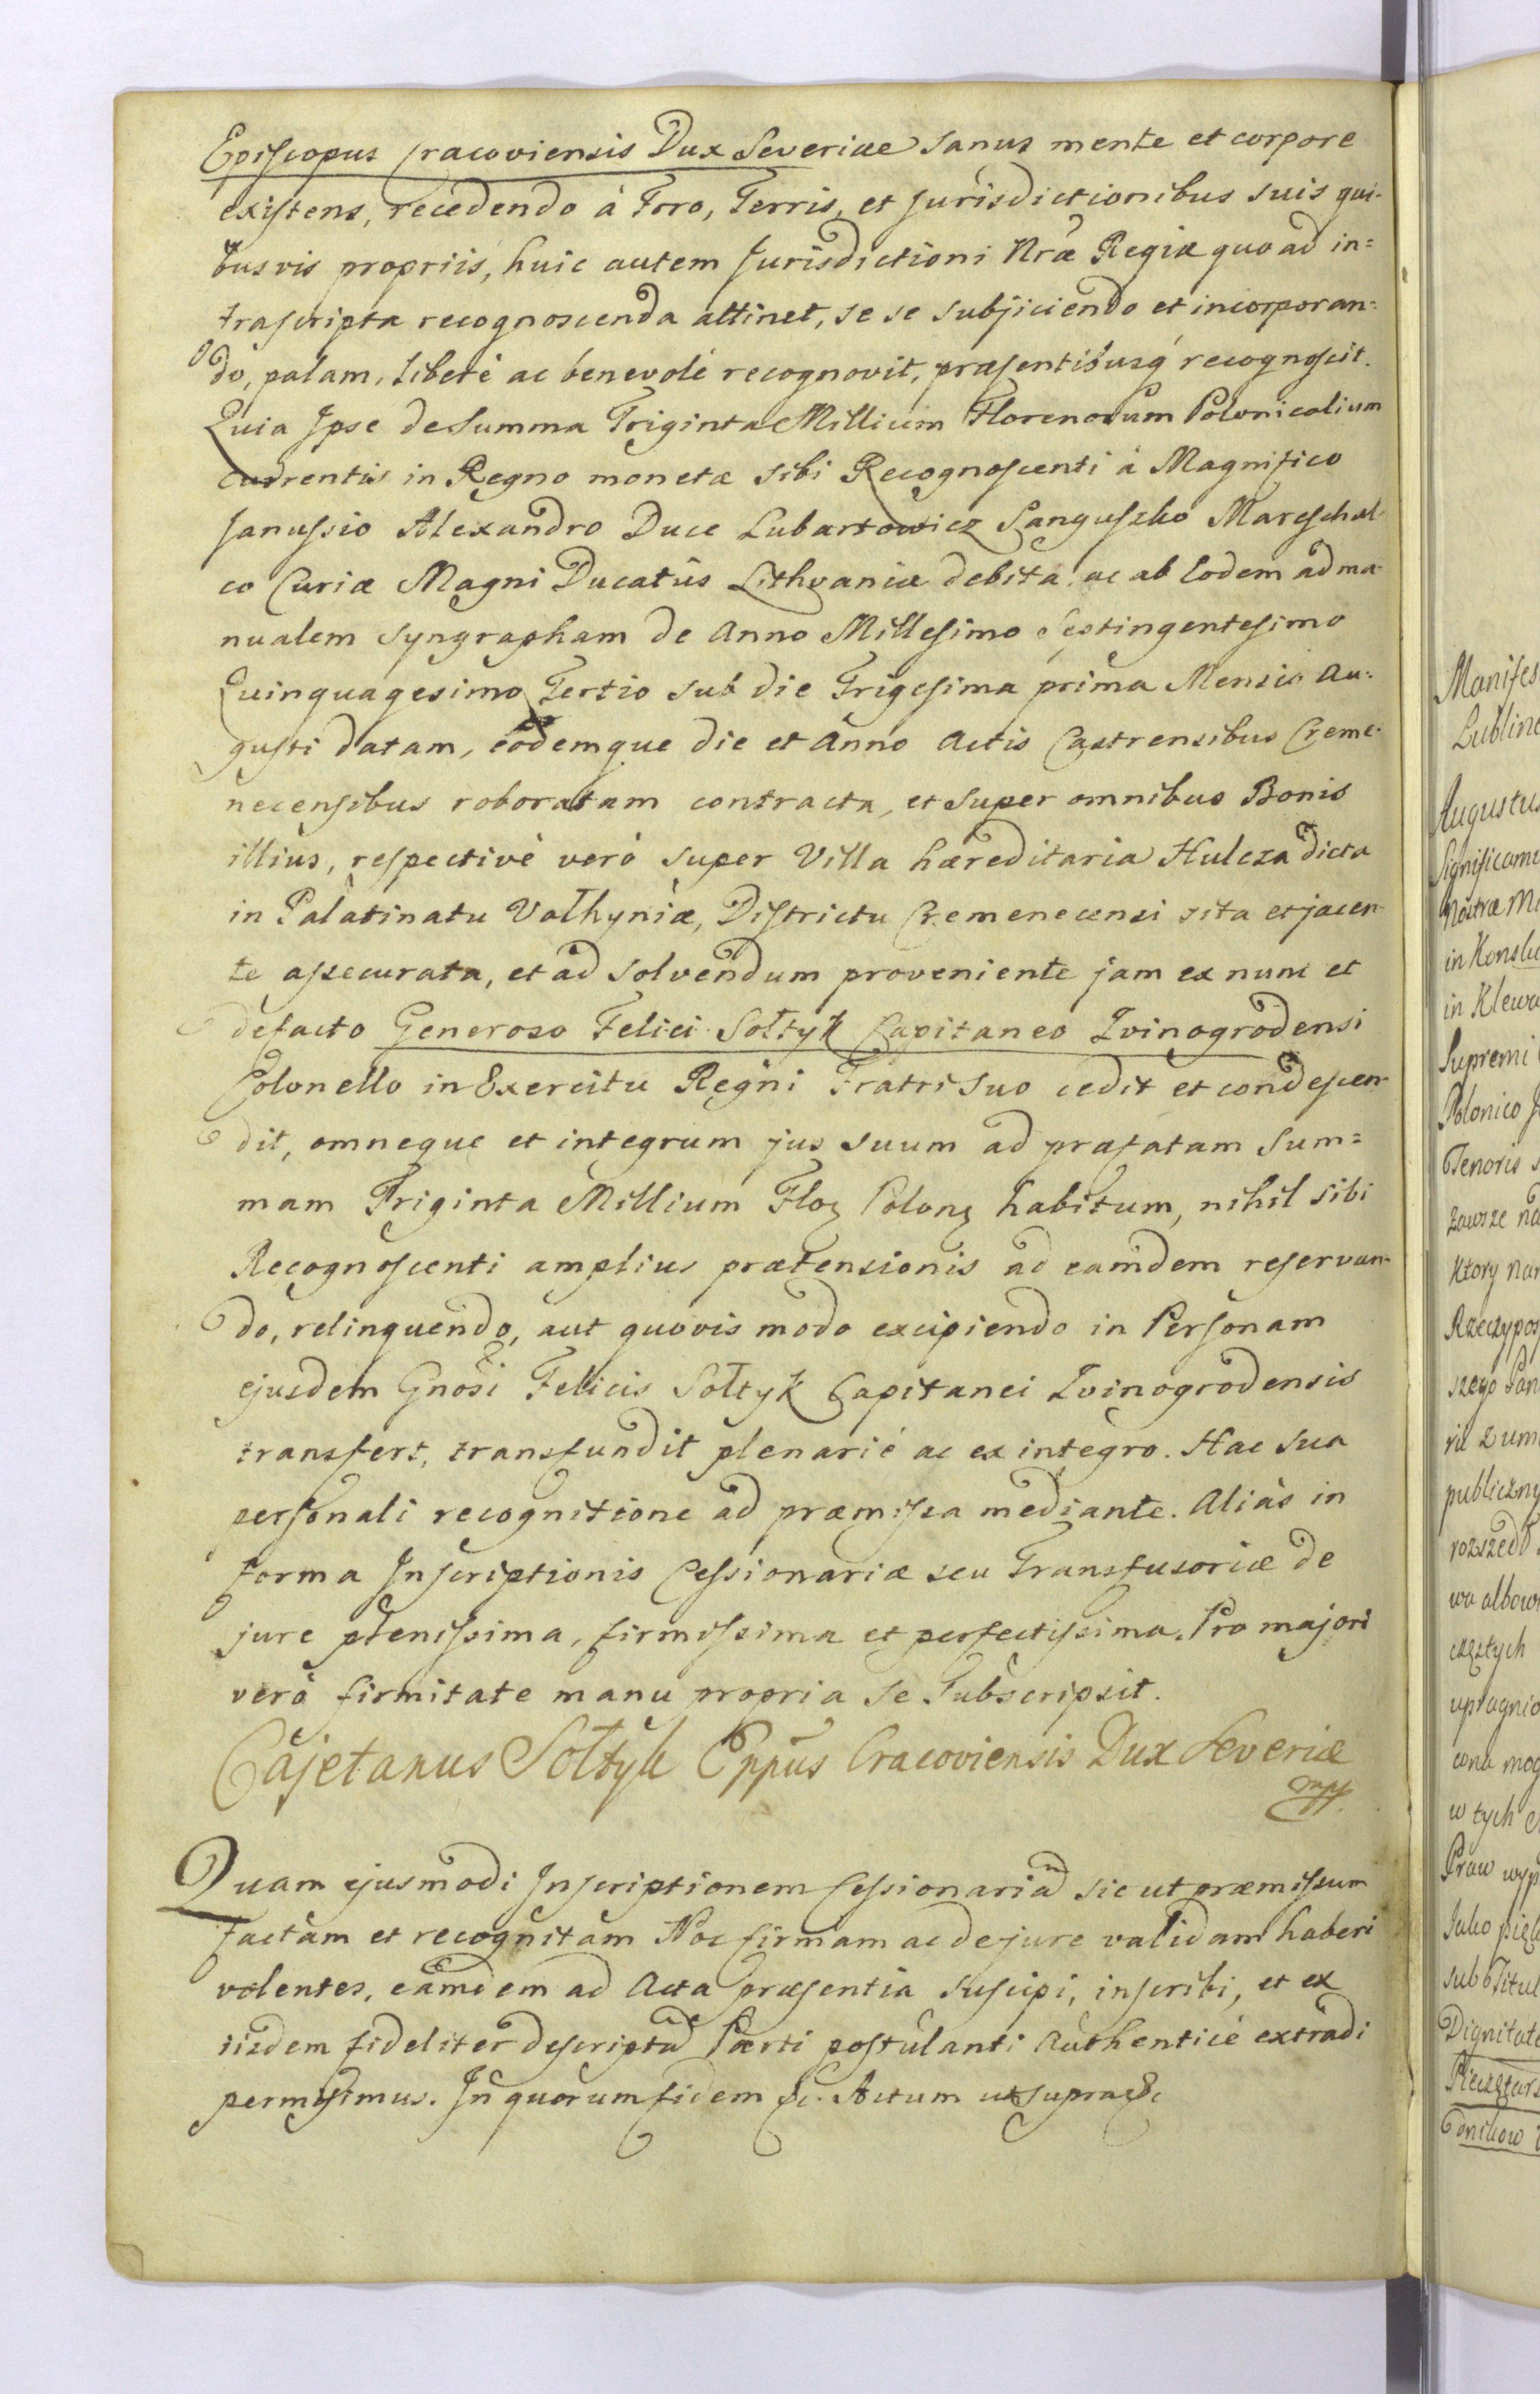 Episcopus Cracoviensis Dux Severiae sanus mente et corpore
existens, recedendo à Foro, Terris, et Jurisdictionibus suis qui-
busvis propriis, huic autem Jurisdictioni Nræ Regiæ quo ad in=
frascripta recognoscenda attinet, se se subjiciendo et incorporan=
do, palam, liberè ac benevolè recognovit, præsentibusq́ recognoscit.
Quia Ipse de Summa Triginta Millium Florenorum Polonicalium
currentis in Regno monetæ sibi Recognoscenti à Magnifico
Janussio Alexandro Duce Lubartowicz Sanguszko Mareschal-
co Curiæ Magni Ducatûs Lithvaniæ debita, ac ab Eodem ad ma-
nualem syngrapham de Anno Millesimo Septingentesimo
Quinquagesimo Tertio sub die Trigesima prima Mensis Au-
gusti datam, eodemque die et Anno Actis Castrensibus Creme-
necensibus roboratam contracta, et super omnibus Bonis
illius, respectivè verò super Villa hæreditaria Hulcza dicta
in Palatinatu Volhyniæ, Districtu Cremenecensi sita et jacen-
te assecurata, et ad solvendum proveniente jam ex nunc et
defacto Generoso Felici Sołtyk Capitaneo Zvinogrodensi
Colonello in Exercitu Regni Fratri suo cedit et condescen-
dit, omneque et integrum jus suum ad præfatam Sum=
mam Triginta Millium Floz Polonz habitum, nihil sibi
Recognoscenti amplius prætensionis ad eamdem reservan-
do, relinquendo, aut quovis modo excipiendo in Personam
ejusdem Gnosi Felicis Sołtyk Capitanei Zvinogrodensis
transfert, transfundit plenariè ac ex integro. Hac sua
personali recognitione ad præmissa mediante. Aliàs in
forma Inscriptionis Cessionariæ seu Transfusoriæ de
jure plenissima, firmissima et perfectissima. Pro majori
verò firmitate manu propria se subscripsit.
Cajetanus Sołtyk Eppus Cracoviensis Dux Severiæ
mpp.
Quam ejusmodi Inscriptionem Cessionariam sic ut præmissum
factam et recognitam Nos firmam ac de jure validam haberi
volentes, eamdem ad Acta præsentia suscipi, inscribi, et ex
iisdem fideliter descriptam Parti postulanti Authenticè extradi
permisimus. In quorum fidem &c. Actum ut supra &c
Manifes
Lubline
Augustus
Significamu
Nostræ Ma
in Klewa
Supremi
Polonico J
Tenoris s
zawsze na
Ktory nar
Rzeczypos
szego Pan
publiczny
rozszedł
wa albow
częstych
upragnio
w tych
Praw wyp
sub Titul
Dignitate